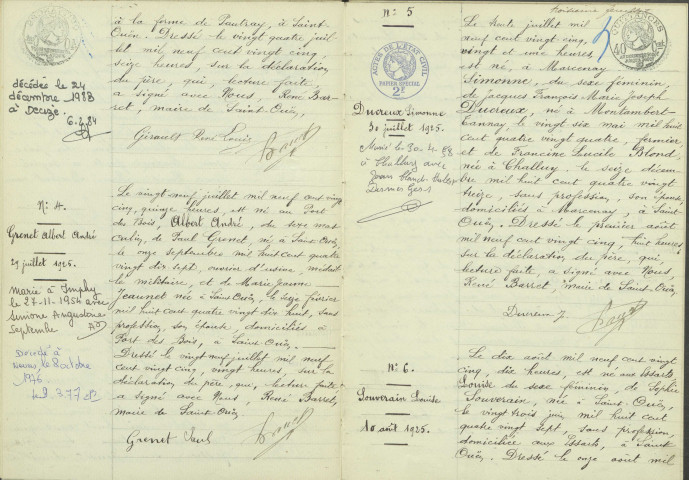 à la forme de Pautray, à Saint-
Ouën. Dressé le vingt quatre juil-
let mil neuf cent vingt cinq,
seize heures, sur la déclaration
du père, qui, lecture faite,
a signé avec Nous, René Bar-
ret, maire de Saint-Ouën.
Girault René Louis
Barret
décédée le 24
décembre 1983
à Decize
6.2.84
N° 4.
Grenet Albert André
29 juillet 1925.
marié à Imphy
le 27-11-1954 avec
Simone Augustine
Septembe
Divorcé à
Nevers, le 8 octobre
1976
Le vingt-neuf juillet mil neuf cent vingt
cinq, quinze heures, est né au Port
des Bois, Albert André, du sexe mas-
culin, de Paul Grenet, né à Saint-Ouën,
le onze septembre mil huit cent quatre
vingt dix sept, ouvrier d'usine, médaillé
militaire, et de Marie Jeanne
Jeaunet née à Saint-Ouën, le seize février
mil huit cent quatre vingt dix huit, sans
profession, son épouse, domiciliés à
Port des Bois, à Saint-Ouën.
Dressé le vingt neuf juillet mil neuf
cent vingt cinq, vingt heures, sur la
déclaration du père, qui, lecture faite
a signé avec Nous, René Barret,
maire de Saint-Ouën.
Grenet Paul
Barret
N° 5
ACTES DE L'ÉTAT CIVIL
PAPIER SPÉCIAL
2F
Ducreux Simonne
30 juillet 1925.
Le trente juillet mil
neuf cent vingt cinq,
vingt et une heures,
est née, à Marcenay
Simonne, du sexe féminin,
de Jacques François Marie Joseph
Ducreux, né à Montambert-
Tannay, le vingt six mai mil huit
cent quatre vingt quatre, fermier
et de Francine Lucile Blond,
née à Challuy, le seize décem-
bre mil huit cent quatre vingt
treize, sans profession, son épouse,
domiciliés à Marcenay, à Saint-
Ouën. Dressé le premier août
mil neuf cent vingt cinq, huit heures,
sur la déclaration du père, qui,
lecture faite, a signé avec Nous,
René Barret, maire de Saint-Ouën.
Ducreux J.
Barret
N° 6.
Souverain Louise
10 août 1925.
Le dix août mil neuf cent vingt
cinq, dix heures, est née aux Essarts
Louise du sexe féminin, de Sophie
Souverain, née à Saint-Ouën,
le vingt trois juin mil huit cent
quatre vingt sept, sans profession,
domiciliée aux Essarts, à Saint-
Ouën. Dressé le onze août mil